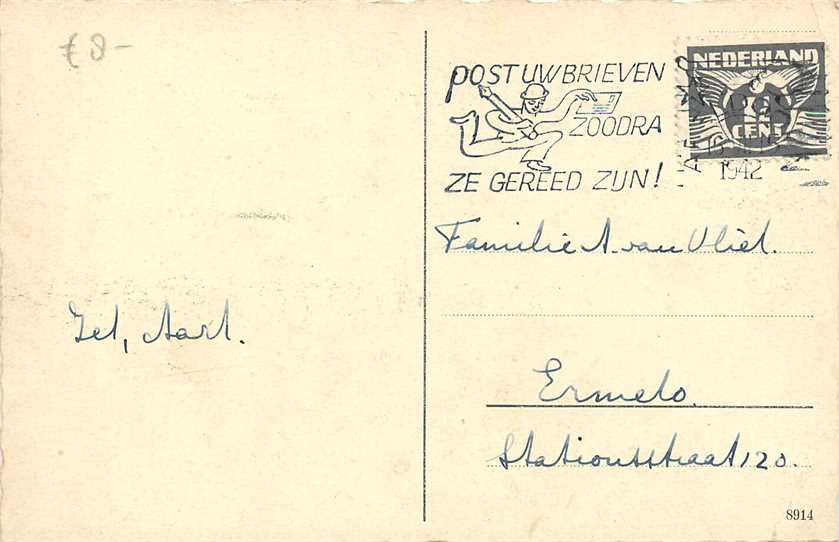 € 8-
POST UW BRIEVEN
ZOODRA
ZE GEREED ZIJN!
NEDERLAND
CENT
1942
Familie A. van Vliet.
Jet, Aart.
Ermelo.
Stationsstraat 120.
8914